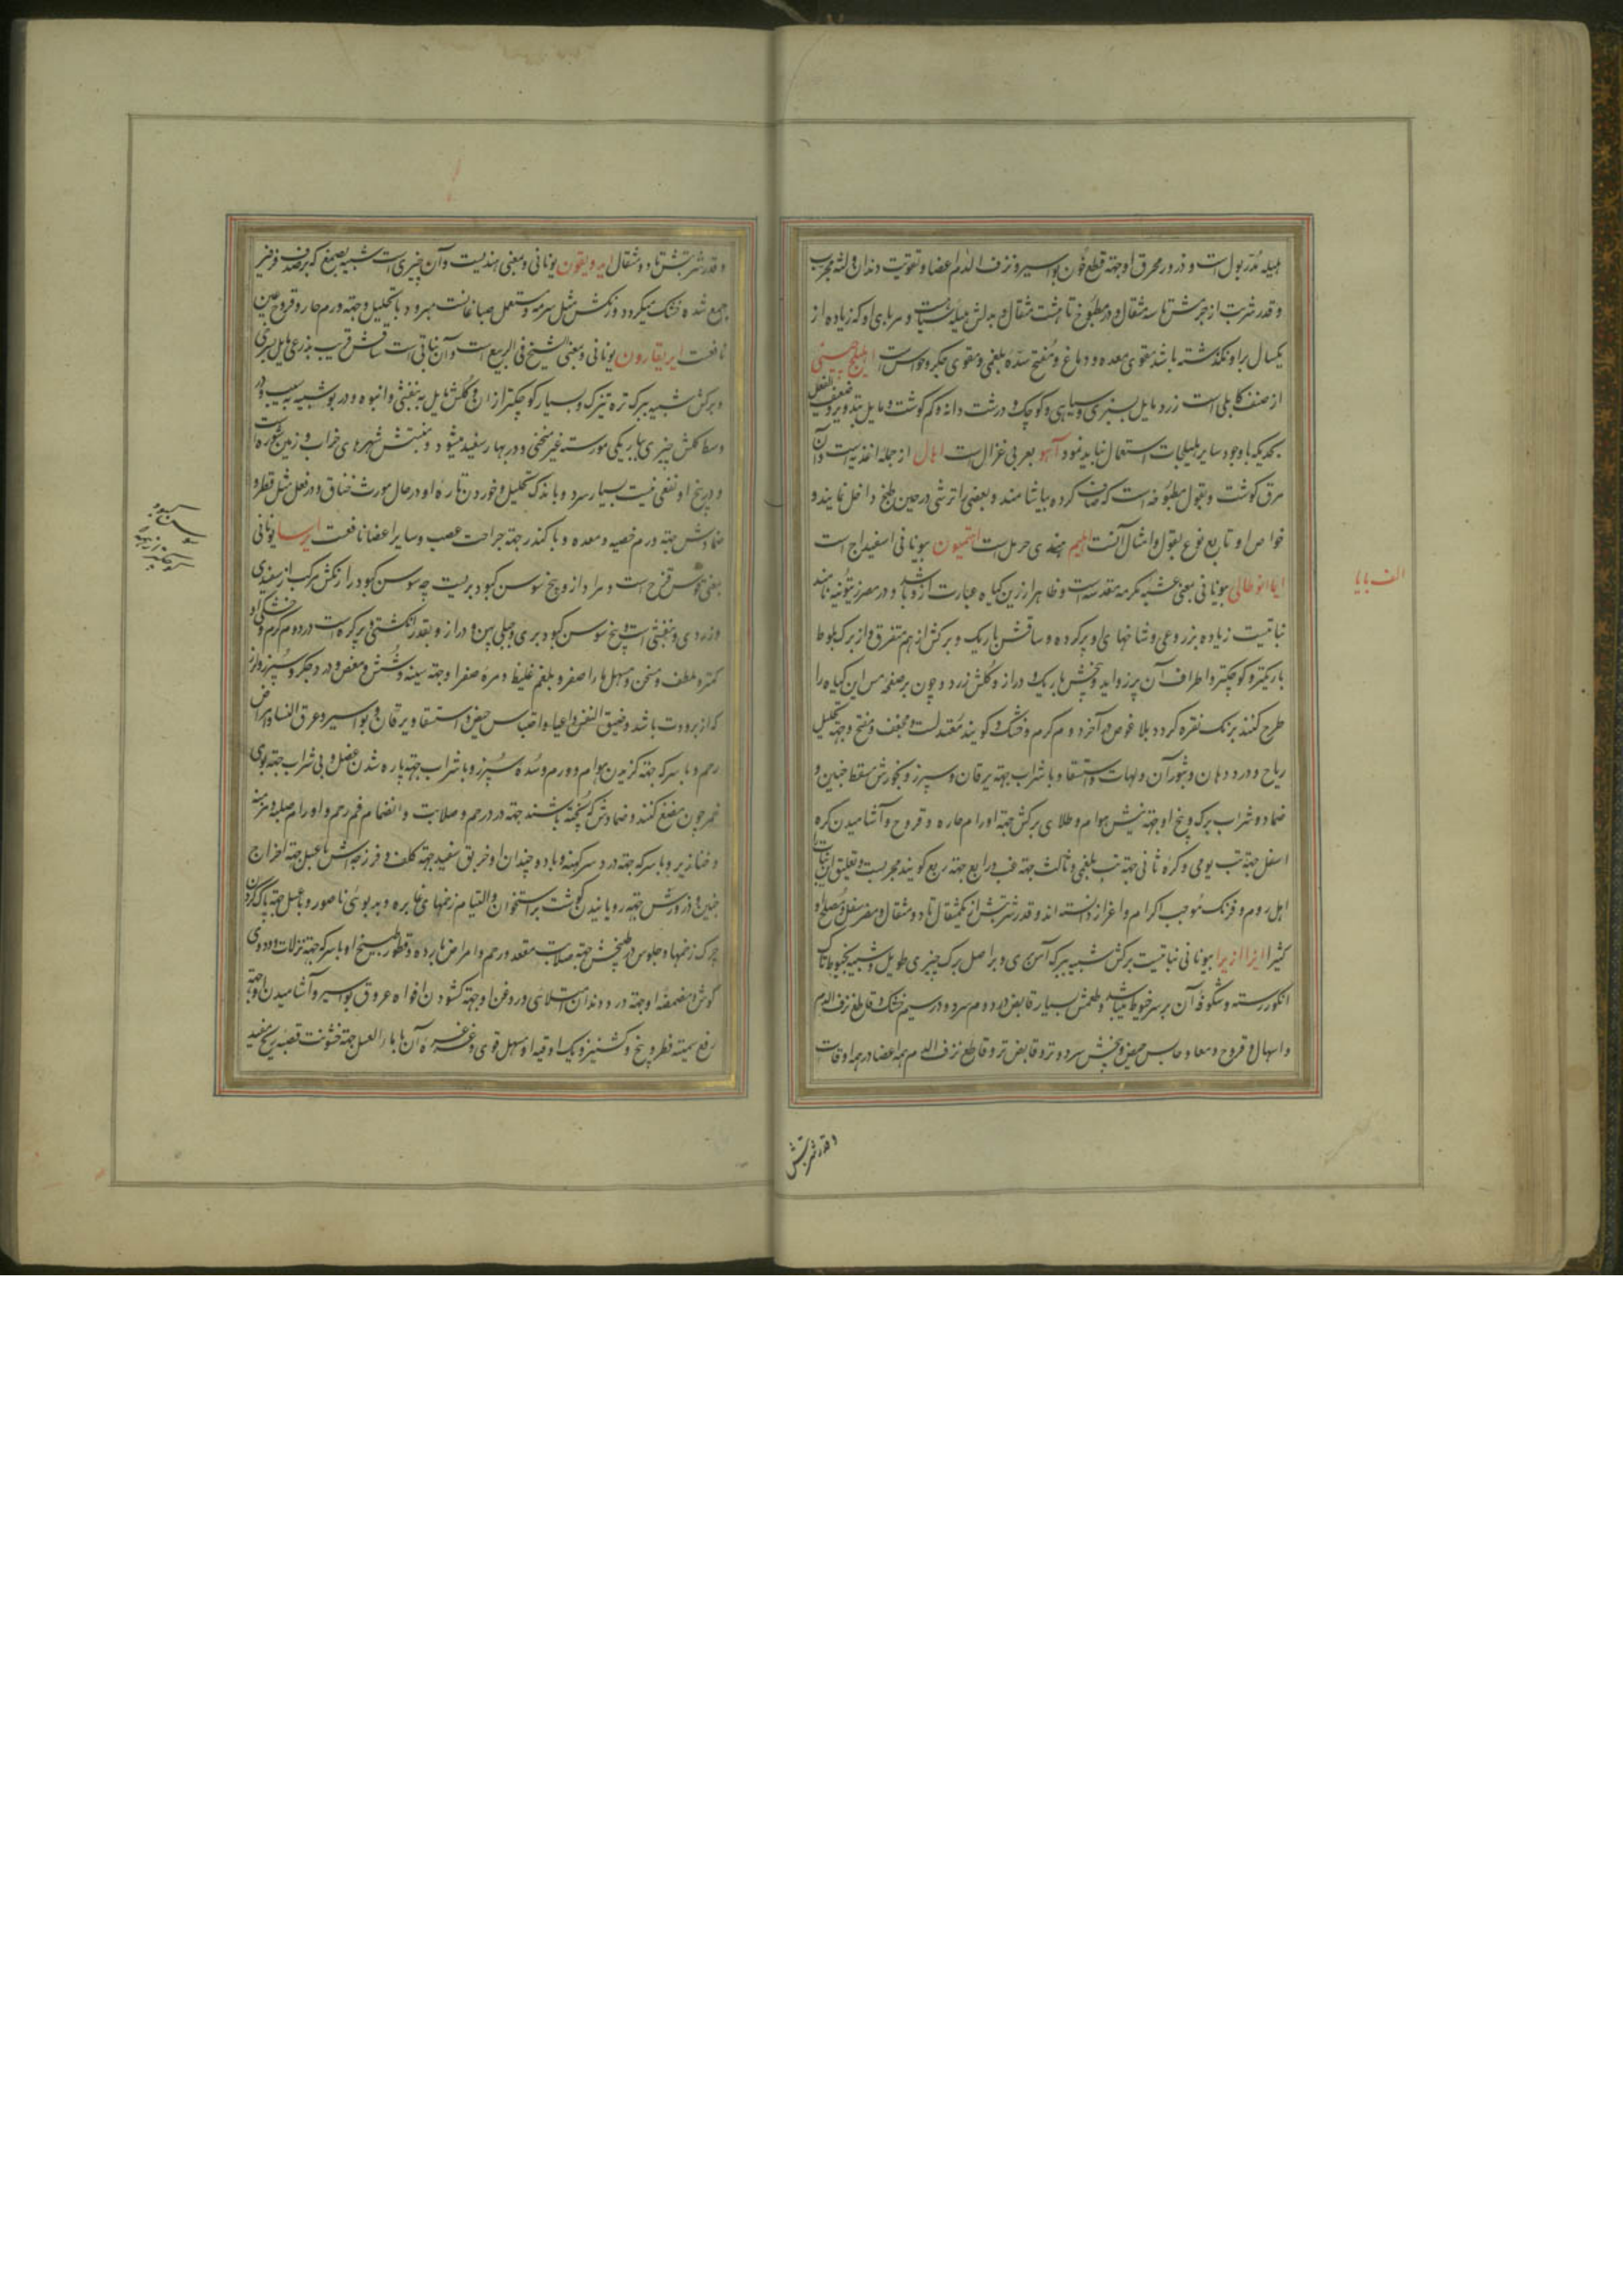 هلیله مدر بول است و ذرور محرق او جهته قطع خون بواسیر و نزف الدم اعضا و تقویت دندان و لثه مجرب
و قدر شربت از جرمش تا سه مثقال و در مطبوخ تا هشت مثقال و بدلش هلیله سیاست و مربای او که زیاده از
یکسال براو نگذشته باشد مقوی معده و دماغ و مفتح سدهٔ بلغمی و مقوی جگر و حواس است اهلیلج چینی
از صنف کابلی است زرد مایل بسبزی و سیاهی و کوچک و درشت دانه و کم گوشت و مایل بتدویر و ضعیف الفعل
بحدیکه باوجود سایر هلیلجات استعمال نباید نمود آهو بعربی غزال است اهال از جمله اغذیه است و آن
مرق گوشت و بقول مطبوخه است که صاف کرده بیاشامند و بعضی را ترشی در حین طبخ داخل نمایند و
خواص او تابع نوع بقول و امثال آنست اهلیم هندی حرمل است ایتمیون بیونانی اسفیداج است
الف با یا
ایما انوطالی بیونانی بمعنی عشبهٔ مکرمه مقدسه است و ظاهرا زرین گیاه عبارت از و باشد و در مصر زیتونیه نامند
نباتیست زیاده بزرعی و شاخهای او پر گره و ساقش باریک و برگش از هم متفرق و از برگ بلوط
باریکتر و کوچکتر و اطراف آن پر زواید و بیخش باریک و دراز و گلش زرد و چون بر صفحه مس این گیاه را
طرح کنند برنک نقره گردد بلا غوص در آخر دوم گرم و خشک و گویند معتدلست و مجفف و مفتح و جهته تحلیل
ریاح و درد دهان و بثور آن و لهات و استسقا و با شراب جهته یرقان و سپرز و بخورش مسقط جنین و
ضماد و شراب برک و بیخ او جهته نیش هوام و طلای برگش جهته اورام حاره و قروح و آشامیدن گره
اسفل جهته تب یومی و گرهٔ ثانی جهته تب بلغمی و ثالث جهته غب و رابع جهته ربع گویند مجربست و تعلیق این نبات را
اهل روم و فرنک موجب اکرام و اعزاز دانسته اند و قدر شربتش از یکمثقال تا دو مثقال و مضر سفل و مصلح او
کثیرا ایزا ازیرا بیونانی نباتیست برگش شبیه ببرک آس بری و بر اصل برک چیزی طویل و شبیه بخیوط تاک
انگور رسته و شکوفهٔ آن بر سر خیوط میباشد و طعمش بسیار قابض در دوم سرد و در سیم خشک و قاطع نزف الدم
و اسهال و قروح و معا و حابس حیض و بیخش سرد و تر و قابض تر و قاطع نزف الدم همه اعضا در همه اوقات
و قدر شربتش
و قدر شربتش تا دو مثقال ایدویقون یونانی و بمعنی هندیست و آن چیزی است شبیه بصمغ که بر صدف فرفیر
جمع شده خشک میگردد و رنگش مثل سرمه و مستعمل صباغانست مبرد و با تحلیل و جهته ورم حار و قروح عین
نافعست ایریقارون یونانی و بمعنی الشیخ فی الربیع است و آن نباتی است ساقش قریب بذرعی مایل بسرخی
و برگش شبیه ببرک تره تیزک و بسیار کوچکتر از ان و گلش مایل به بنفشی و انبوه و در بو شبیه به سیب و در
وسط گلش چیزی بباریکی مو رسته غیر منحنی و در بهار سفید میشود و منبتش شهرهای خراب و زمین شوره است
و در بیخ او نفعی نیست بسیار سرد و با اندک تحلیل و خوردن تازه او در حال مورث خناق و در فعل مثل فطر و
ضمادش جهته ورم خصیه و معده و با کندر جهته جراحت عصب و سایر اعضا نافعست ایرسا یونانی
بمعنی قوس قزح است و مراد از و بیخ سوسن کبود بریست چه سوسن کبود را رنگش مرکب از سفیدی
و زردی و بنفشی است و بیخ سوسن کبود بری و جبلی پهن و دراز و بقدر انگشتی و پر گره است در دوم گرم و خشکی او
کمتر و ملطف و مسخن و مسهل ماء اصفر و بلغم غلیظ و مره صفرا و جهته سینه و شش و مغص و درد جگر و سپرز و آنچه
که از برودت باشد و ضیق النفس و اعیا و احتباس حیض و استسقا و یرقان و بواسیر و عرق النسا و امراض
رحم و با سرکه جهته گزیدن هوام و ورم و سدهٔ سپرز و با شراب جهته پاره شدن عضل و بی شراب جهته بوی
خمر چون مضغ کنند و ضمادش که پخته باشند جهته درد رحم و صلابت و انضمام فم رحم و اورام صلبه مزمنه
و خنازیر و با سرکه جهته درد سر کهنه و با دو چندان او خربق سفید جهته کلف و فرزجه اش با عسل جهته اخراج
جنین و ذرورش جهته رویانیدن گوشت بر استخوان و التیام زخمهای غایره و بدبوئی ناصور و با عسل جهته پاک کردن
چرک زخمها و جلوس در طبیخش جهته صلابت مقعد و رحم و امراض بارده و قطور طبیخ او با سرکه جهته نزلات و دوی
گوش و مضمضهٔ او جهته درد دندان امتلائی و روغن او جهته گشودن افواه عروق بواسیر و آشامیدن او جهته
رفع سمیته فطر و بنج و کشنیز و یک اوقیه او مسهل قوی و غرغره آن با ماء العسل جهته خشونت قصبه ریه مفید